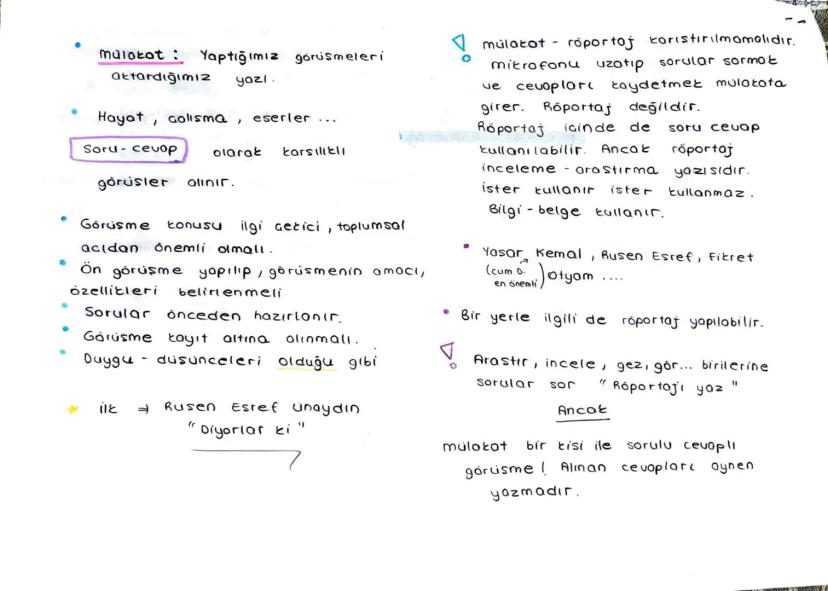 • Mülakat : Yaptığımız görüşmeleri
aktardığımız yazı.
• Hayat, çalışma, eserler ...
Soru-cevap olarak karşılıklı
görüşler alınır.
• Görüşme konusu ilgi çekici, toplumsal
açıdan önemli olmalı.
• Ön görüşme yapılıp, görüşmenin amacı,
özellikleri belirlenmeli
• Sorular önceden hazırlanır.
• Görüşme kayıt altına alınmalı.
• Duygu - düşünceleri olduğu gibi
★ ilk ⇒ Ruşen Eşref Ünaydın
"Diyorlar ki"
! mülakat - röportaj karıştırılmamalıdır.
mikrofonu uzatıp sorular sormak
ve cevapları kaydetmek mülakata
girer. Röportaj değildir.
Röportaj içinde de soru cevap
kullanılabilir. Ancak röportaj
inceleme - araştırma yazısıdır.
ister kullanır ister kullanmaz.
Bilgi - belge kullanır.
• Yaşar Kemal, Ruşen Eşref, Fikret
(cum D. en önemli) Otyam ....
• Bir yerle ilgili de röportaj yapılabilir.
! Araştır, incele, gez, gör... birilerine
sorular sor "Röportajı yaz"
Ancak
mülakat bir kişi ile sorulu cevaplı
görüşme! Alınan cevapları aynen
yazmadır.